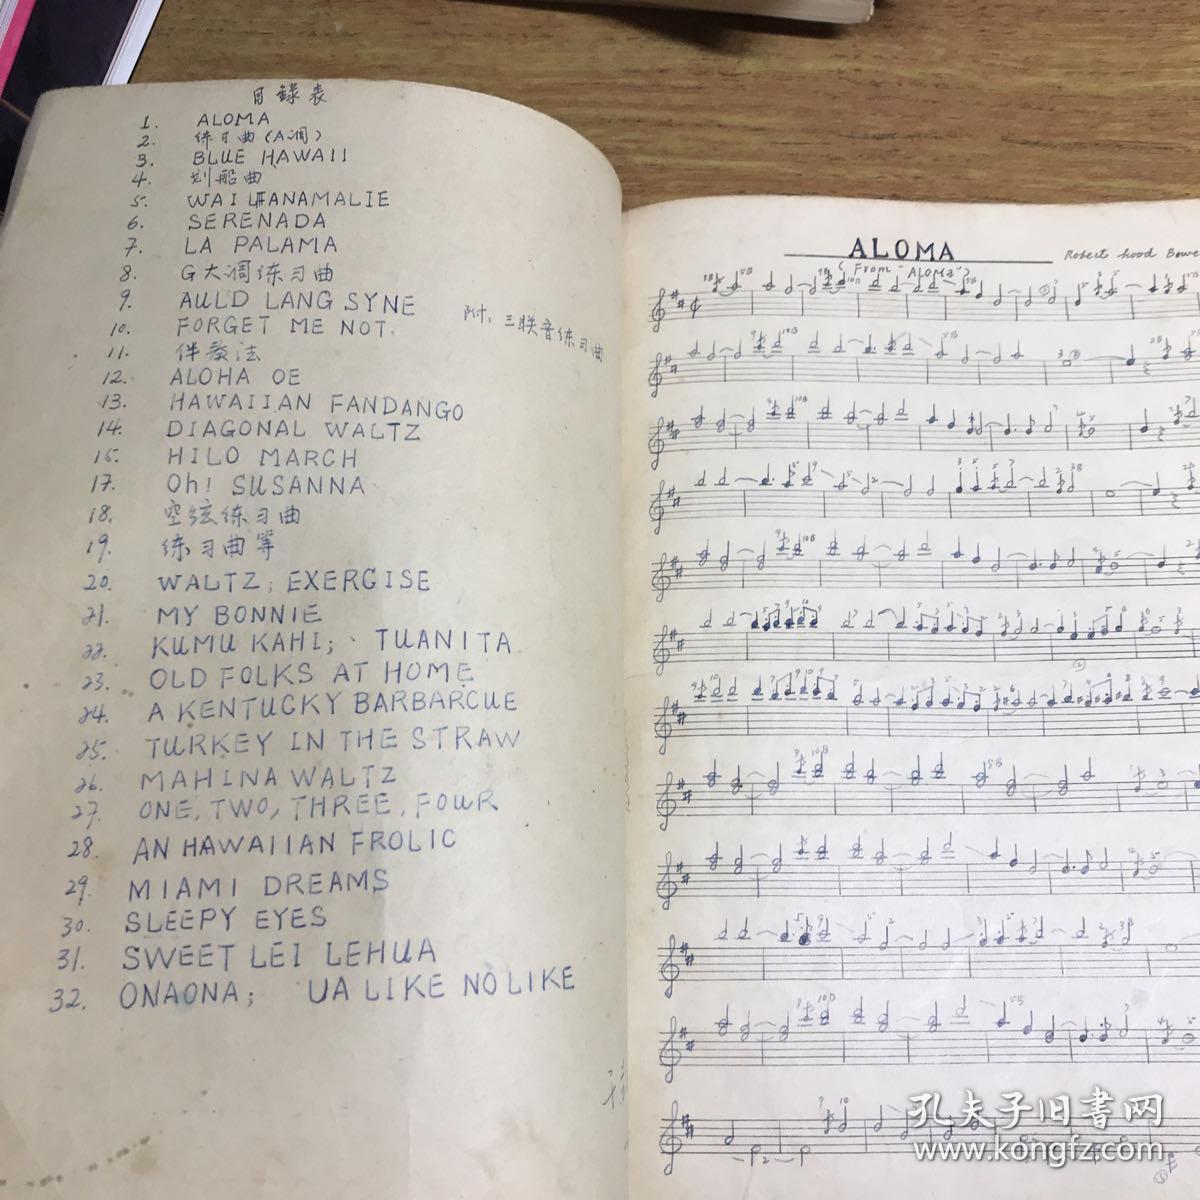 目錄表
1. ALOMA
2. 练习曲(A调)
3. BLUE HAWAII
4. 划船曲
5. WAILANAMALIE
6. SERENADA
7. LA PALAMA
8. G大调练习曲
9. AULD LANG SYNE
10. FORGET ME NOT.
附:三联音练习曲
11. 伴奏法
12. ALOHA OE
13. HAWAIIAN FANDANGO
14. DIAGONAL WALTZ
15. HILO MARCH
17. Oh! SUSANNA
18. 空弦练习曲
19. 练习曲等
20. WALTZ; EXERGISE
21. MY BONNIE
22. KUMU KAHI; TUANITA.
23. OLD FOLKS AT HOME
24. A KENTUCKY BARBARCUE
25. TURKEY IN THE STRAW
26. MAHINA WALTZ
27. ONE, TWO, THREE, FOUR
28. AN HAWAIIAN FROLIC
29. MIAMI DREAMS
30. SLEEPY EYES
31. SWEET LEI LEHUA
32. ONAONA; UA LIKE NO LIKE
ALOMA
(From "ALOMA")
Robert hood Bowe
孔夫子旧書网
www.kongfz.com